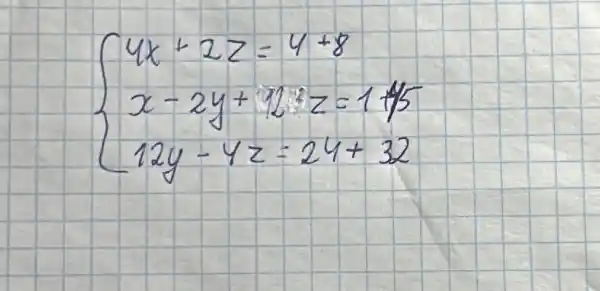 4x + 2z = 4 + 8
x - 2y + 12 + z = 1 + 45
12y - 4z = 24 + 32